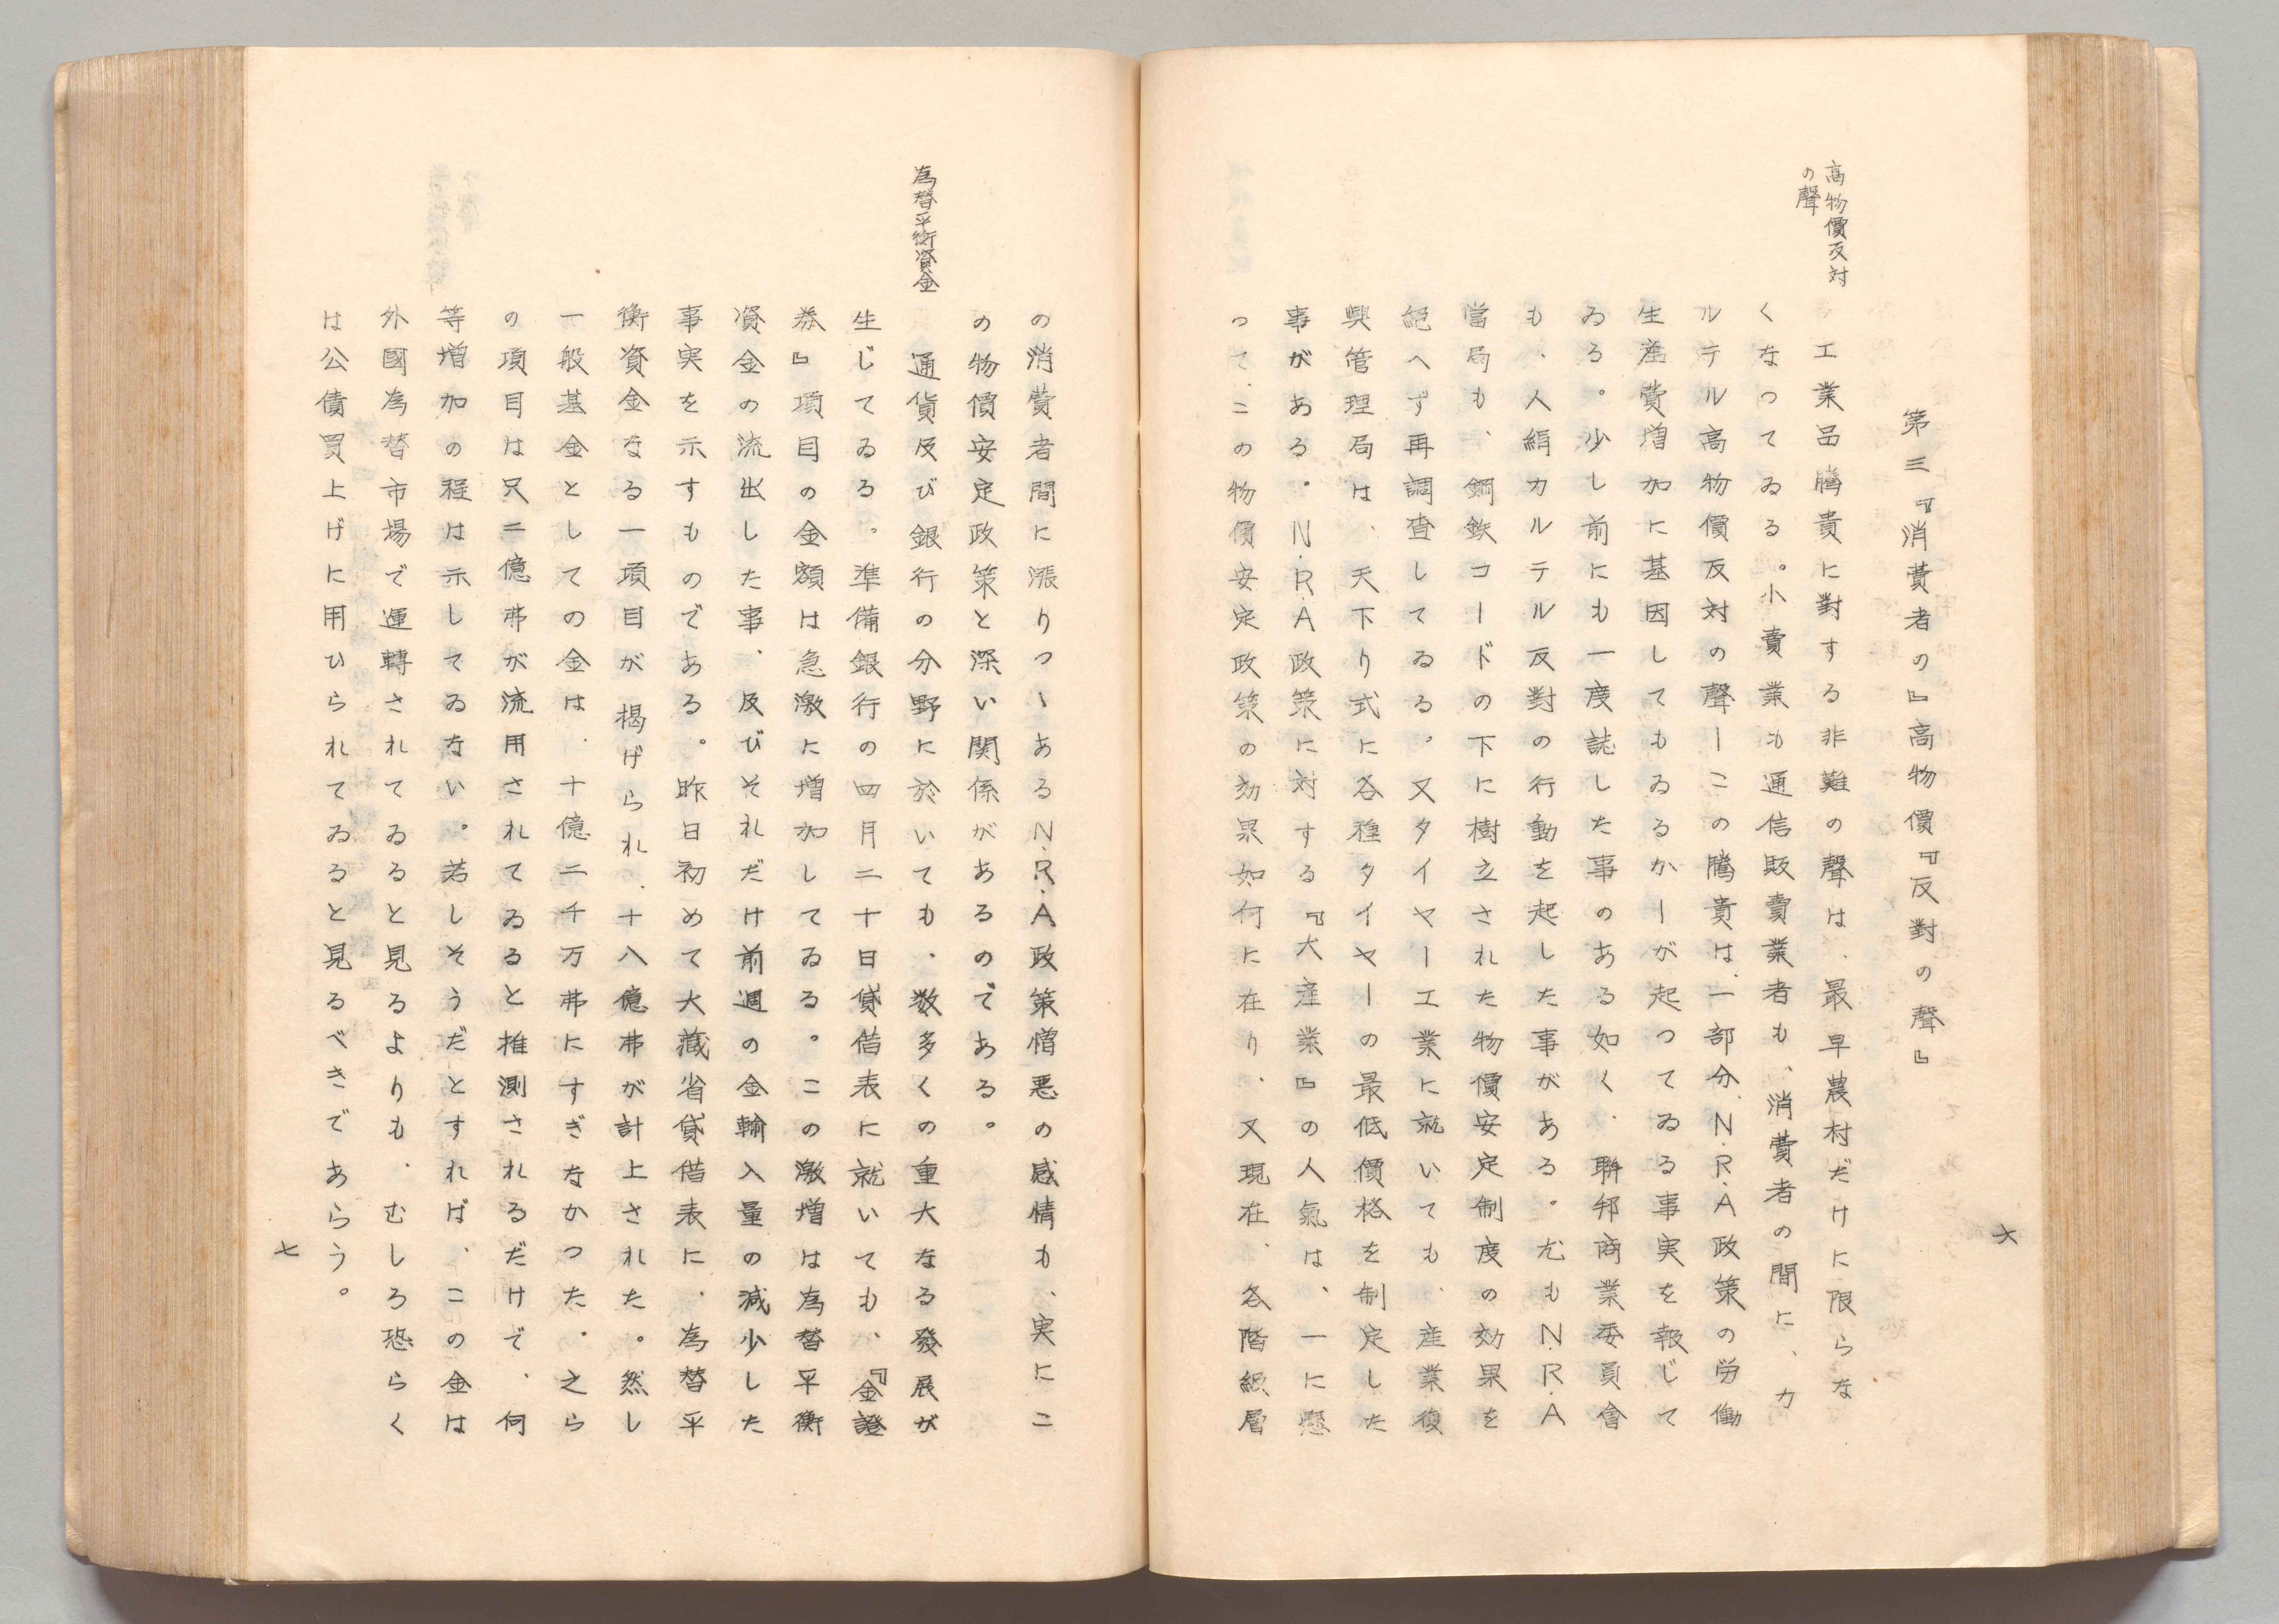 六
高物價反対
の聲
第三『消費者の』高物價『反對の聲』
工業品騰貴に對する非難の聲は、最早農村だけに限らな
くなつてゐる。小賣業も通信販賣業者も、消費者の間に、カ
ルテル高物價反対の聲ーこの騰貴は、一部分、N.R.A政策の労働
生産費増加に基因してもゐるかーが起つてゐる事実を報じて
ゐる。少し前にも一度誌した事のある如く、聨邦商業委員會
も、人絹カルテル反對の行動を起した事がある。尤もN.R.A
當局も、鋼鉄コードの下に樹立された物價安定制度の効果を
絶へず再調査してゐる。又タイヤー工業に就いても、産業復
興管理局は、天下り式に各種タイヤーの最低價格を制定した
事がある。N.R.A政策に対する『大産業』の人氣は、一に懸
つて、この物價安定政策の効果如何に在り、又現在、各階級層
の消費者間に漲りつゝあるN.R.A政策憎悪の感情も、実にこ
の物價安定政策と深い関係があるのである。
為替平衡資金
通貨及び銀行の分野に於いても、数多くの重大なる發展が
生じてゐる。準備銀行の四月二十日貸借表に就いても、『金證
券』項目の金額は急激に増加してゐる。この激増は為替平衡
資金の流出した事、及びそれだけ前週の金輸入量の減少した
事実を示すものである。昨日初めて大藏省貸借表に、為替平
衡資金なる一項目が揭げられ、十八億弗が計上された。然し
一般基金としての金は、十億二千万弗にすぎなかつた。之ら
の項目は只二億弗が流用されてゐると推測されるだけで、何
等増加の程は示してゐない。若しそうだとすれば、この金は
外國為替市場で運轉されてゐると見るよりも、むしろ恐らく
は公債買上げに用ひられてゐると見るべきであらう。
七